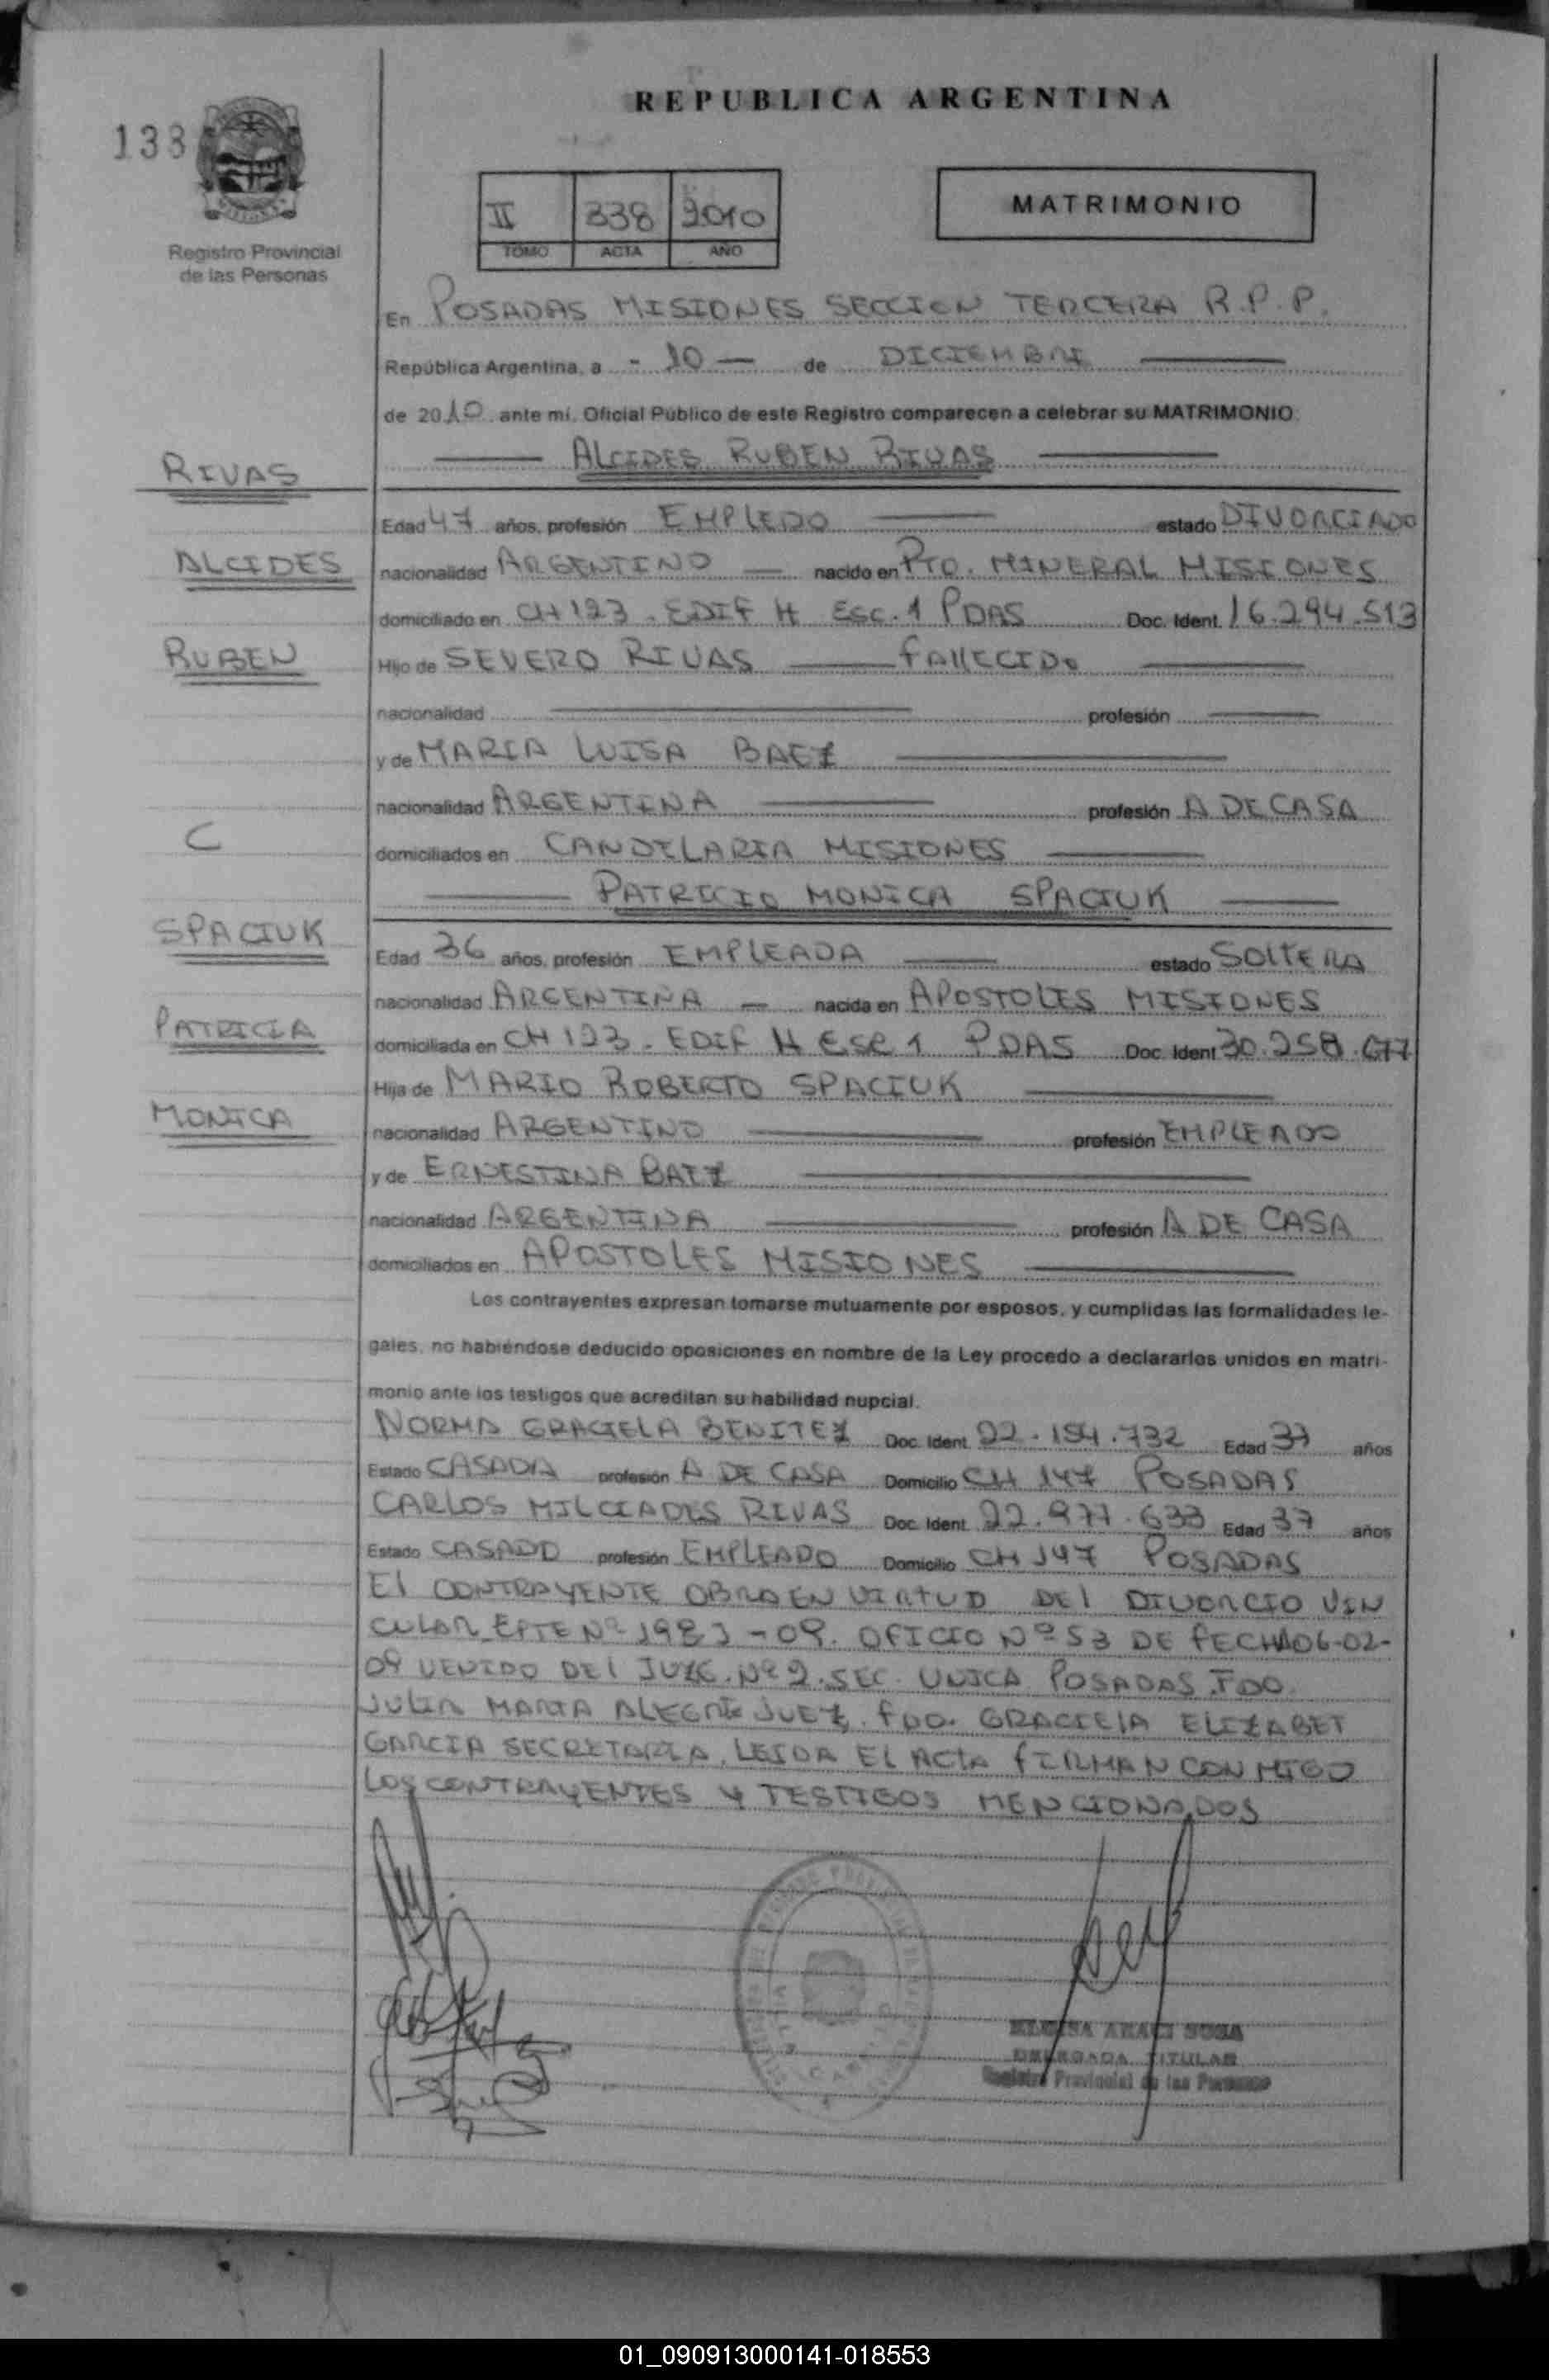 REPUBLICA ARGENTINA
138
Registro Provincial
de las Personas
II 338 2010
TOMO ACTA AÑO
MATRIMONIO
En POSADAS MISIONES SECCION TERCERA R.P.P.
República Argentina, a - 10 — de DICIEMBRE
de 2010 ante mi, Oficial Público de este Registro comparecen a celebrar su MATRIMONIO:
ALCIDES RUBEN RIVAS
RIVAS
Edad 47 años, profesión EMPLEDO estado DIVORCIADO
ALCIDES
nacionalidad ARGENTINO — nacido en PTO. MINERAL MISIONES
domiciliado en CH 123 - EDIF H ESC. 1 PDAS Doc. Ident. 16.294.513
RUBEN
Hijo de SEVERO RIVAS FALLECIDO
nacionalidad profesión
y de MARIA LUISA BAEZ
nacionalidad ARGENTINA profesión A DE CASA
C
domiciliados en CANDELARIA MISIONES
PATRICIO MONICA SPACIUK
SPACIUK
Edad 36 años, profesión EMPLEADA estado SOLTERA
nacionalidad ARGENTINA — nacida en APOSTOLES MISIONES
PATRICIA
domiciliada en CH 123 - EDIF H ESC 1 PDAS Doc. Ident 30.258.677
Hija de MARIO ROBERTO SPACIUK
MONICA
nacionalidad ARGENTINO profesión EMPLEADO
y de ERNESTINA BAEZ
nacionalidad ARGENTINA profesión A DE CASA
domiciliados en APOSTOLES MISIONES
Los contrayentes expresan tomarse mutuamente por esposos, y cumplidas las formalidades le-
gales, no habiéndose deducido oposiciones en nombre de la Ley procedo a declararlos unidos en matri-
monio ante los testigos que acreditan su habilidad nupcial.
NORMA GRACIELA BENITEZ Doc. Ident. 22.154.732 Edad 37 años
Estado CASADA profesión A DE CASA Domicilio CH 147 POSADAS
CARLOS MILCIADES RIVAS Doc. Ident. 22.977.633 Edad 37 años
Estado CASADO profesión EMPLEADO Domicilio CH 147 POSADAS
El CONTRAYENTE OBRA EN VIRTUD DEl DIVORCIO VIN
CULAR EPTE Nº 1983-09. OFICIO Nº 53 DE FECHA 06-02-
09 VENIDO DEl JUZG. Nº 2. SEC. UNICA POSADAS. FDO.
JULIA MARTA ALEGRE JUEZ. FDO. GRACIELA ELIZABET
GARCIA SECRETARIA. LEIDA EL ACTA FIRMAN CONMIGO
LOS CONTRAYENTES Y TESTIGOS MENCIONADOS
ARACI SOSA
DELEGADA TITULAR
Registro Provincial de las Personas
01_090913000141-018553